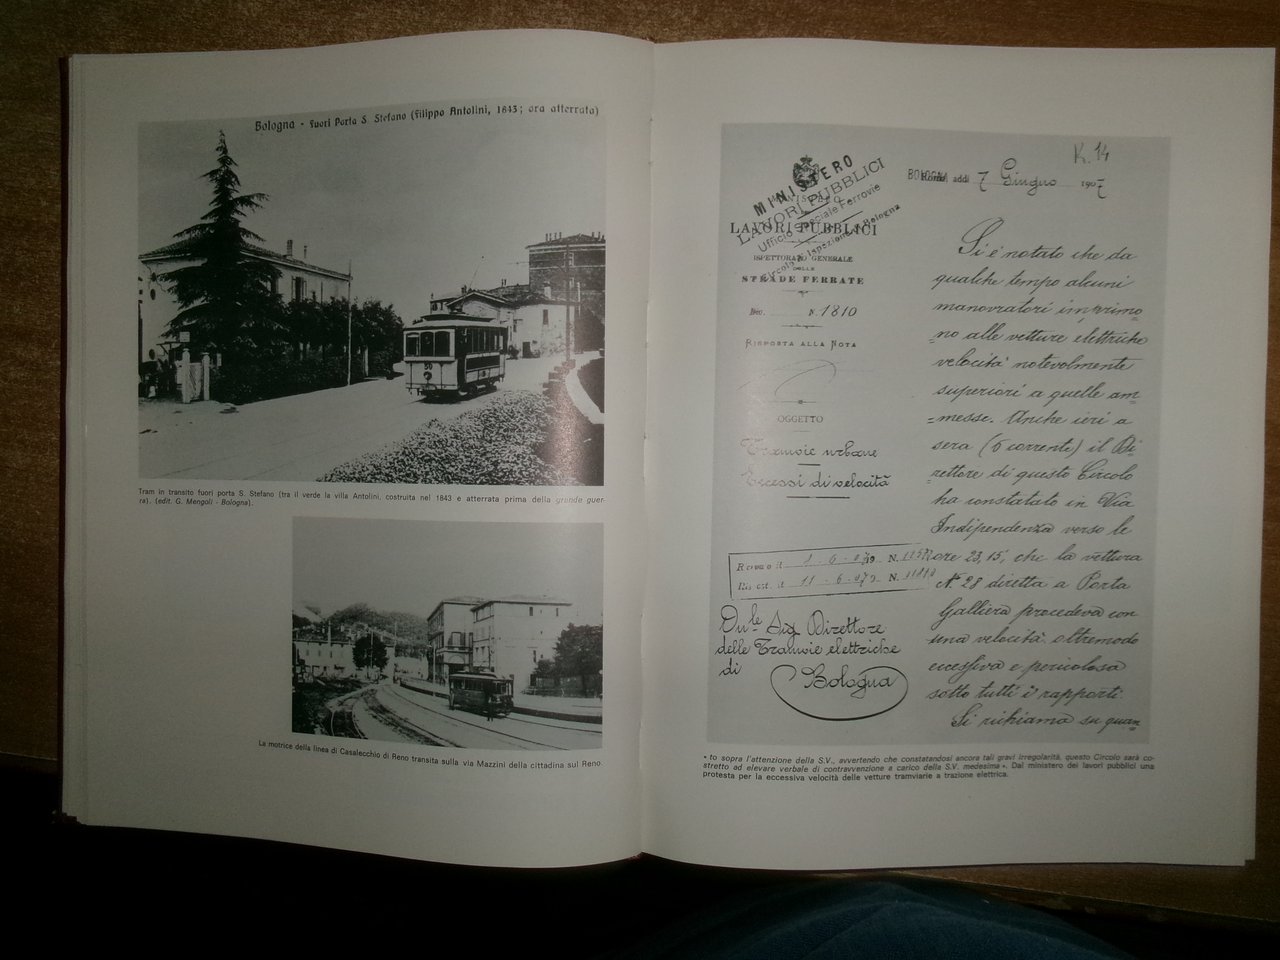 Bologna - fuori Porta S. Stefano (Filippo Antolini, 1843; ora atterrata)
50
Tram in transito fuori porta S. Stefano (tra il verde la villa Antolini, costruita nel 1843 e atterrata prima della grande guer-
ra). (edit. G. Mengoli - Bologna).
La motrice della linea di Casalecchio di Reno transita sulla via Mazzini della cittadina sul Reno
K. 14
MINISTERO
LAVORI PUBBLICI
Ufficio Speciale Ferrovie
Circolo Ispezione Bologna
LAVORI PUBBLICI
ISPETTORATO GENERALE
DELLE
STRADE FERRATE
Div. N. 1810
RISPOSTA ALLA NOTA
OGGETTO
Tramvie urbane
Eccessi di velocità
N.
N.
On.le Sig. Direttore
delle Tramvie elettriche
di
Bologna
BOLOGNA Roma, addì 7 Giugno 1907
Si è notato che da
qualche tempo alcuni
manovratori imprimo=
=no alle vetture elettriche
velocità notevolmente
superiori a quelle am=
=messe. Anche ieri a
sera (6 corrente) il Di=
=rettore di questo Circolo
ha constatato in Via
Indipendenza verso le
ore 23,15', che la vettura
N. 28 diretta a Porta
Galliera procedeva con
una velocità oltremodo
eccessiva e pericolosa
sotto tutti i rapporti.
Si richiama su quan=
« to sopra l'attenzione della S.V., avvertendo che constatandosi ancora tali gravi irregolarità, questo Circolo sarà co-
stretto ad elevare verbale di contravvenzione a carico della S.V. medesima ». Dal ministero dei lavori pubblici una
protesta per la eccessiva velocità delle vetture tramviarie a trazione elettrica.